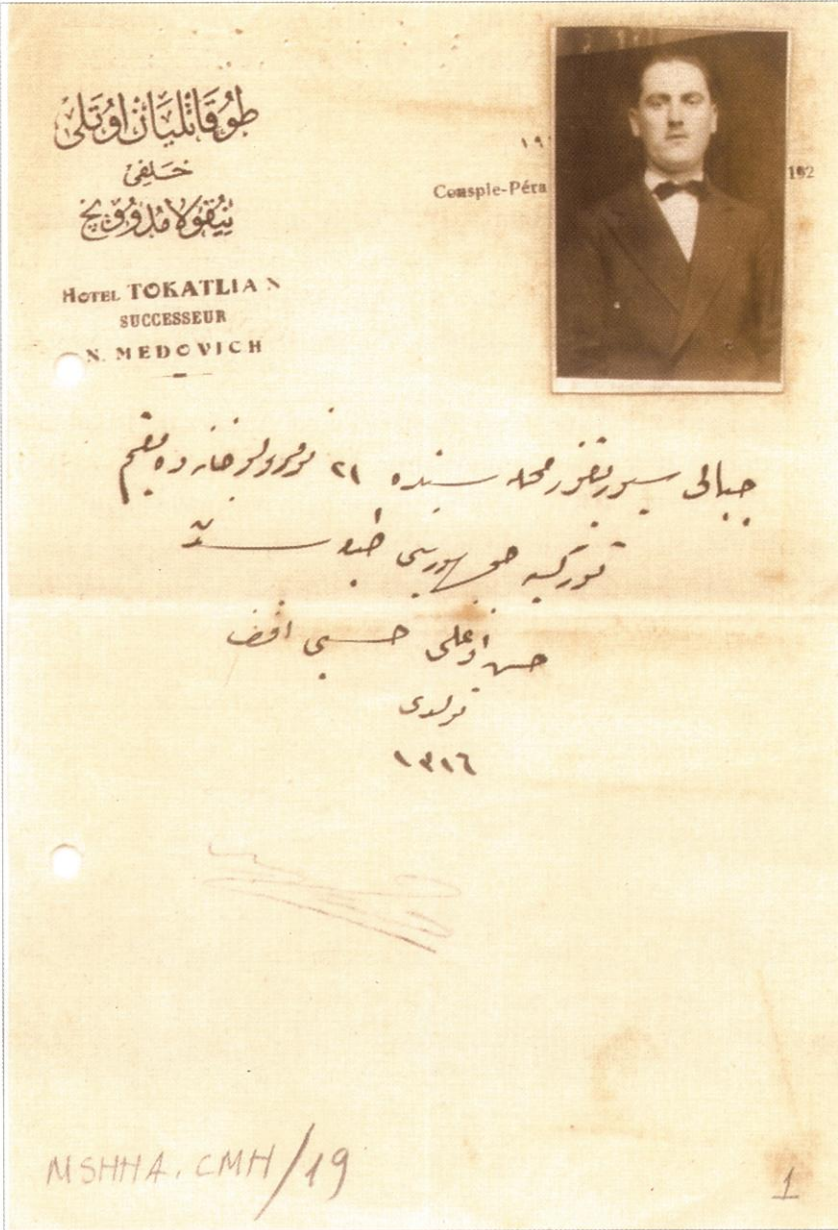 طوقاتليان اوتلى
خلفى
نيقولا مدوويچ
HOTEL TOKATLIAN
SUCCESSEUR
N. MEDOVICH
١٩
Consple-Péra
192
جبالى محله سنده ٢١ نومرولو خانه ده مقيم
توركيه جمهوريتى
حسن اوغلى حسين افند
تولدى
١٣١٦
MSHHA. CMH/19
1